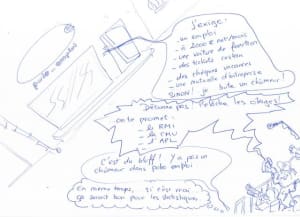 J'exige :
- un emploi
- à 2000 € nets/mois
- une voiture de fonction
- des tickets restau
- des chèques vacances
- une mutuelle d'entreprise
SINON ! je bute un chômeur !
pole-emploi
Déconne pas ! Relâche les otages
on te promet :
- le RMI
- la CMU
- l'APL
C'est du bluff ! Y a pas un
chômeur dans pole emploi
En même temps, si c'est vrai
ça serait bon pour les statistiques